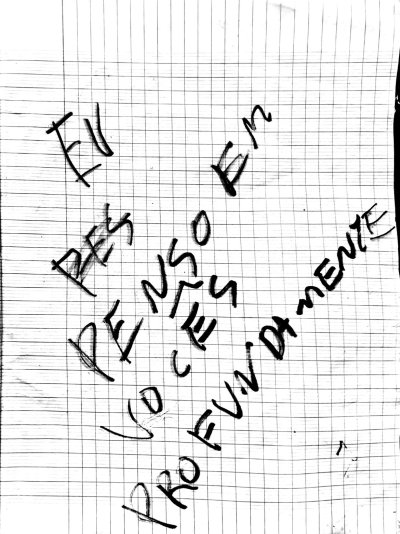 EU
RES
PENSO EM
VOCES
PROFUNDAMENTE